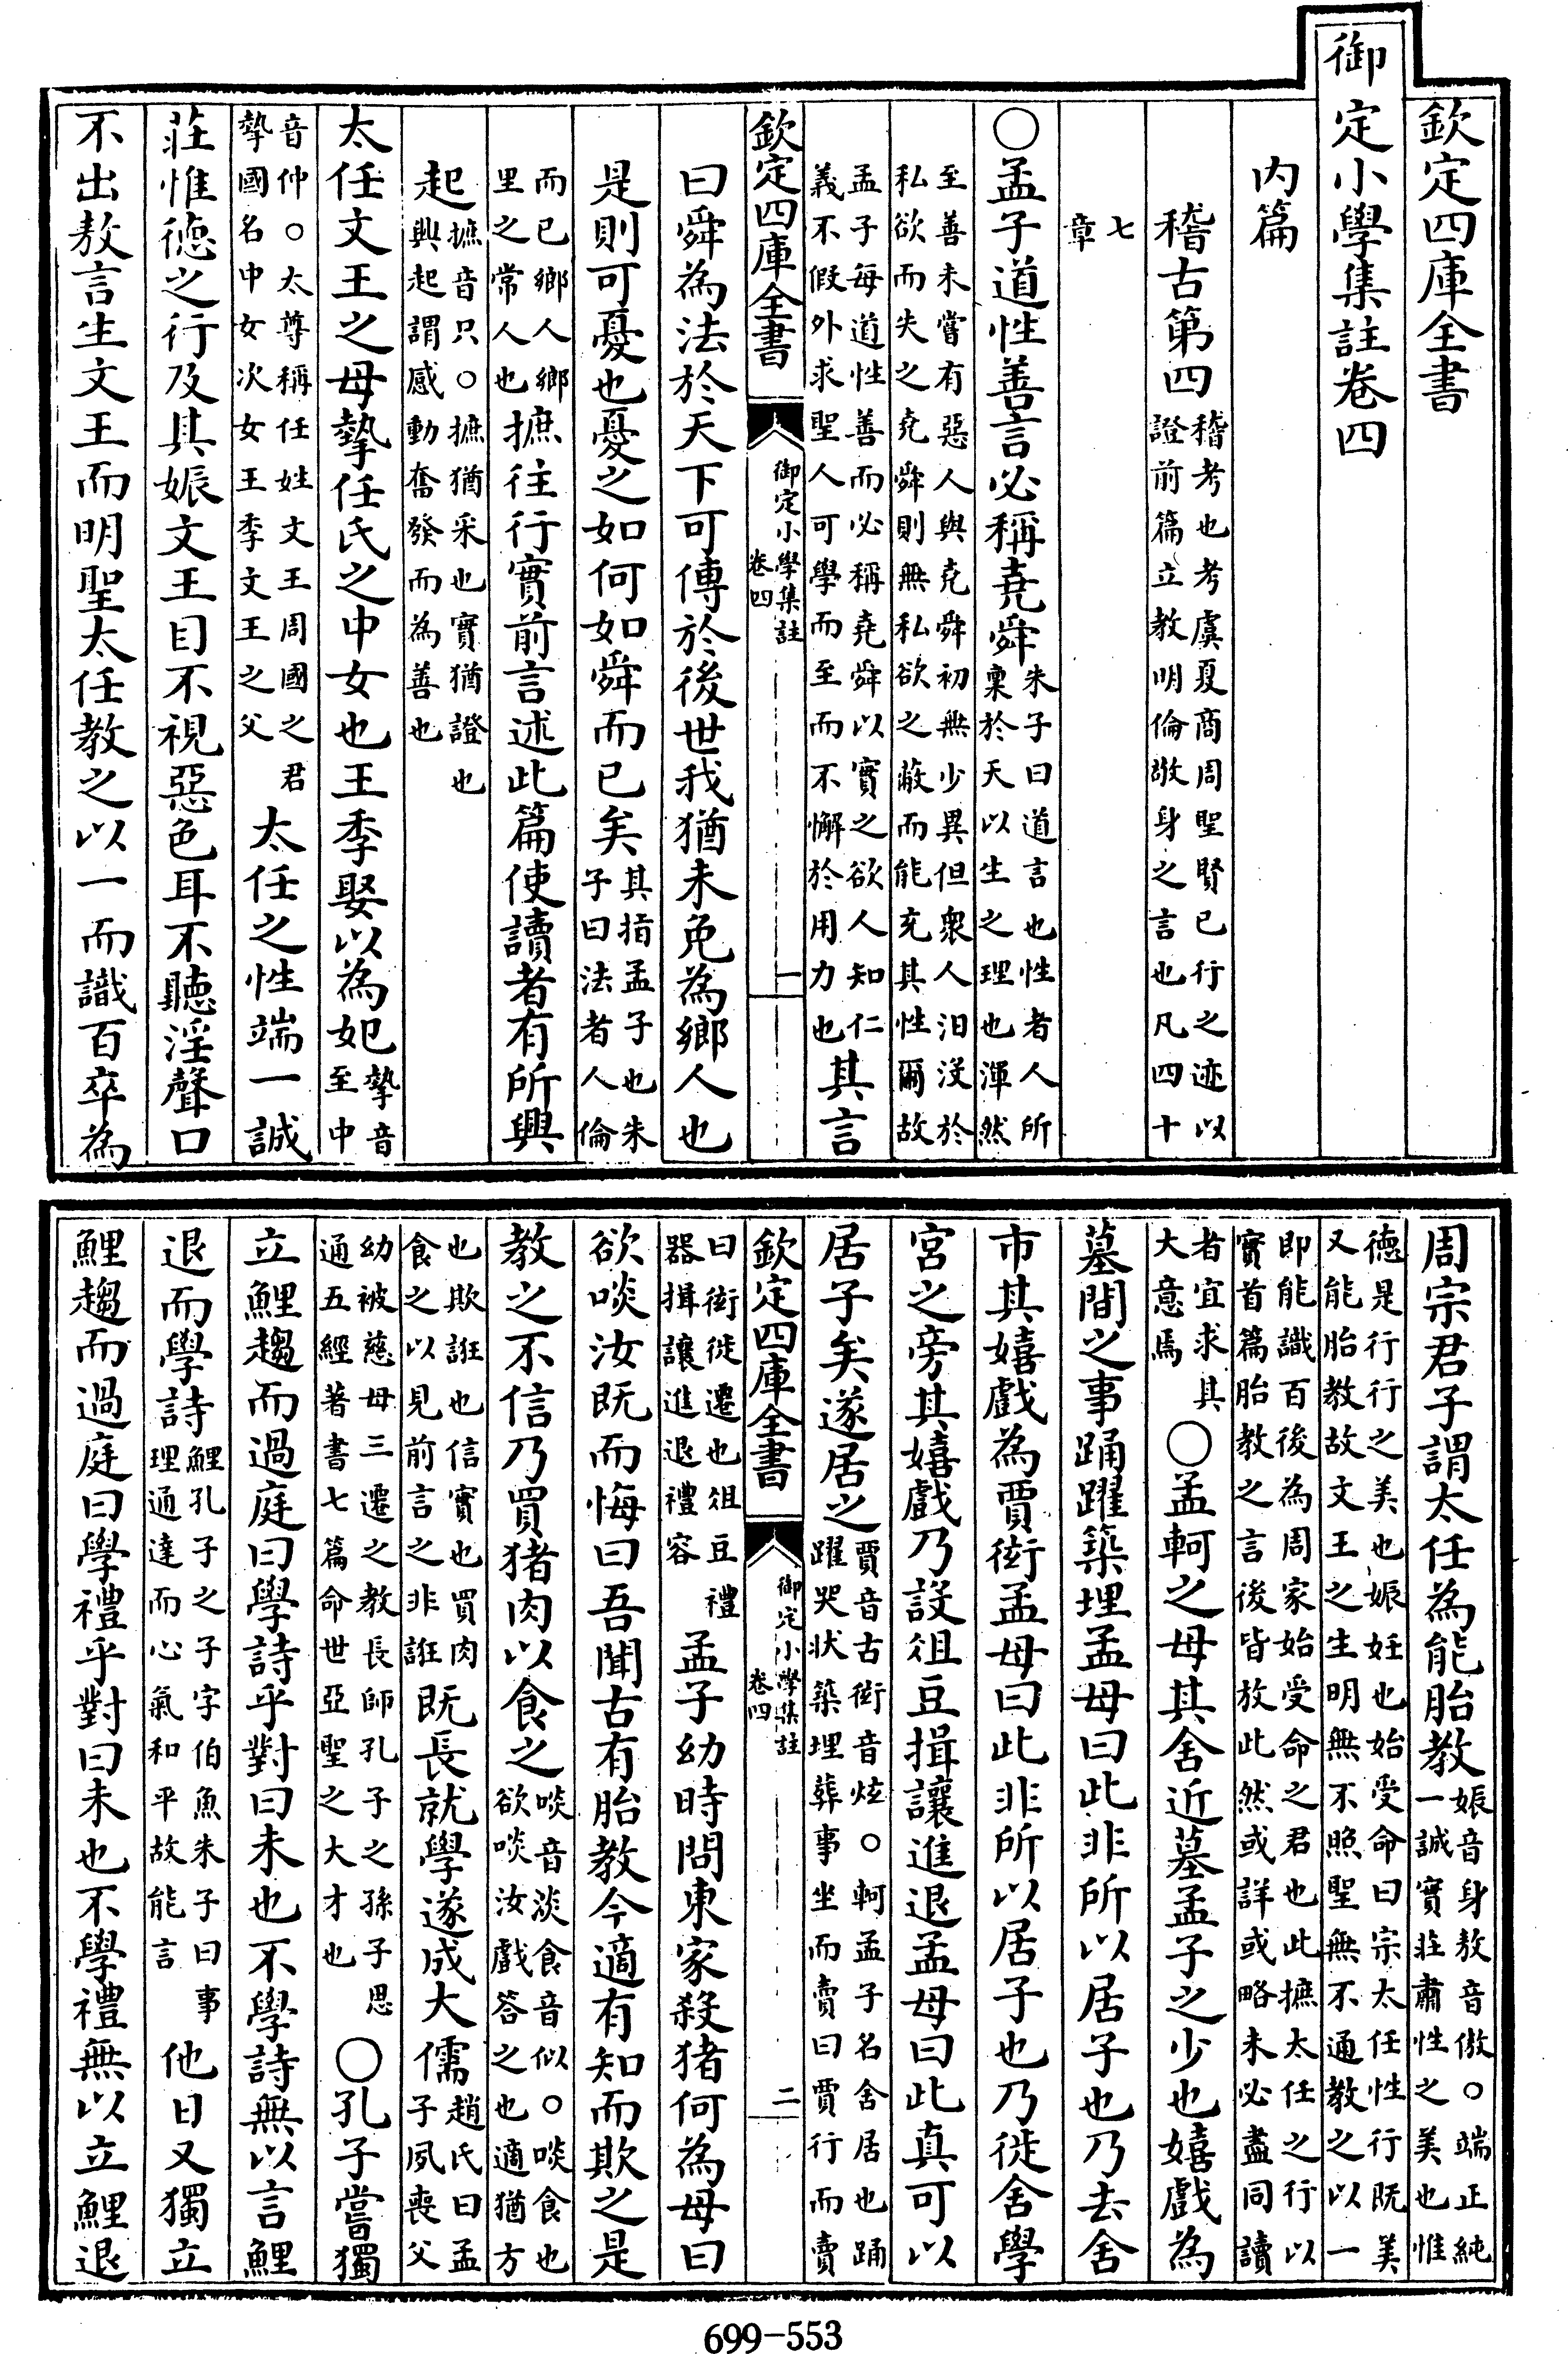 欽定四庫全書
御定小學集註卷四
内篇
稽古第四稽考也考虞夏商周聖賢已行之迹以證前篇立教明倫敬身之言也凡四十
七章
○孟子道性善言必稱堯舜朱子曰道言也性者人所稟於天以生之理也渾然
至善未嘗有惡人與堯舜初無少異但衆人汨沒於私欲而失之堯舜則無私欲之蔽而能充其性爾故
孟子每道性善而必稱堯舜以實之欲人知仁義不假外求聖人可學而至而不懈於用力也其言
欽定四庫全書 御定小學集註 卷四 一
曰舜為法於天下可傳於後世我猶未免為鄉人也
是則可憂也憂之如何如舜而已矣其指孟子也朱子曰法者人倫
而已鄉人鄉里之常人也摭往行實前言述此篇使讀者有所興
起摭音只○摭猶采也實猶證也興起謂感動奮發而為善也
太任文王之母摯任氏之中女也王季娶以為妃摯音至中
音仲○太尊稱任姓文王周國之君摯國名中女次女王季文王之父太任之性端一誠
莊惟德之行及其娠文王目不視惡色耳不聽淫聲口
不出敖言生文王而明聖太任教之以一而識百卒為
周宗君子謂太任為能胎教娠音身敖音傲○端正純一誠實莊肅性之美也惟
德是行行之美也娠妊也始受命曰宗太任性行既美又能胎教故文王之生明無不照聖無不通教之以一
即能識百後為周家始受命之君也此摭太任之行以實首篇胎教之言後皆放此然或詳或略未必盡同讀
者宜求其大意焉○孟軻之母其舍近墓孟子之少也嬉戲為
墓間之事踊躍築埋孟母曰此非所以居子也乃去舍
市其嬉戲為賈衒孟母曰此非所以居子也乃徙舍學
宮之旁其嬉戲乃設俎豆揖讓進退孟母曰此真可以
居子矣遂居之賈音古衒音炫○軻孟子名舍居也踊躍哭狀築埋葬事坐而賣曰賈行而賣
欽定四庫全書 御定小學集註 卷四 二
曰衒徙遷也俎豆禮器揖讓進退禮容孟子幼時問東家殺猪何為母曰
欲啖汝既而悔曰吾聞古有胎教今適有知而欺之是
教之不信乃買猪肉以食之啖音淡食音似○啖食也欲啖汝戲答之也適猶方
也欺誑也信實也買肉食之以見前言之非誑既長就學遂成大儒趙氏曰孟子夙喪父
幼被慈母三遷之教長師孔子之孫子思通五經著書七篇命世亞聖之大才也○孔子嘗獨
立鯉趨而過庭曰學詩乎對曰未也不學詩無以言鯉
退而學詩鯉孔子之子字伯魚朱子曰事理通達而心氣和平故能言他日又獨立
鯉趨而過庭曰學禮乎對曰未也不學禮無以立鯉退
699-553